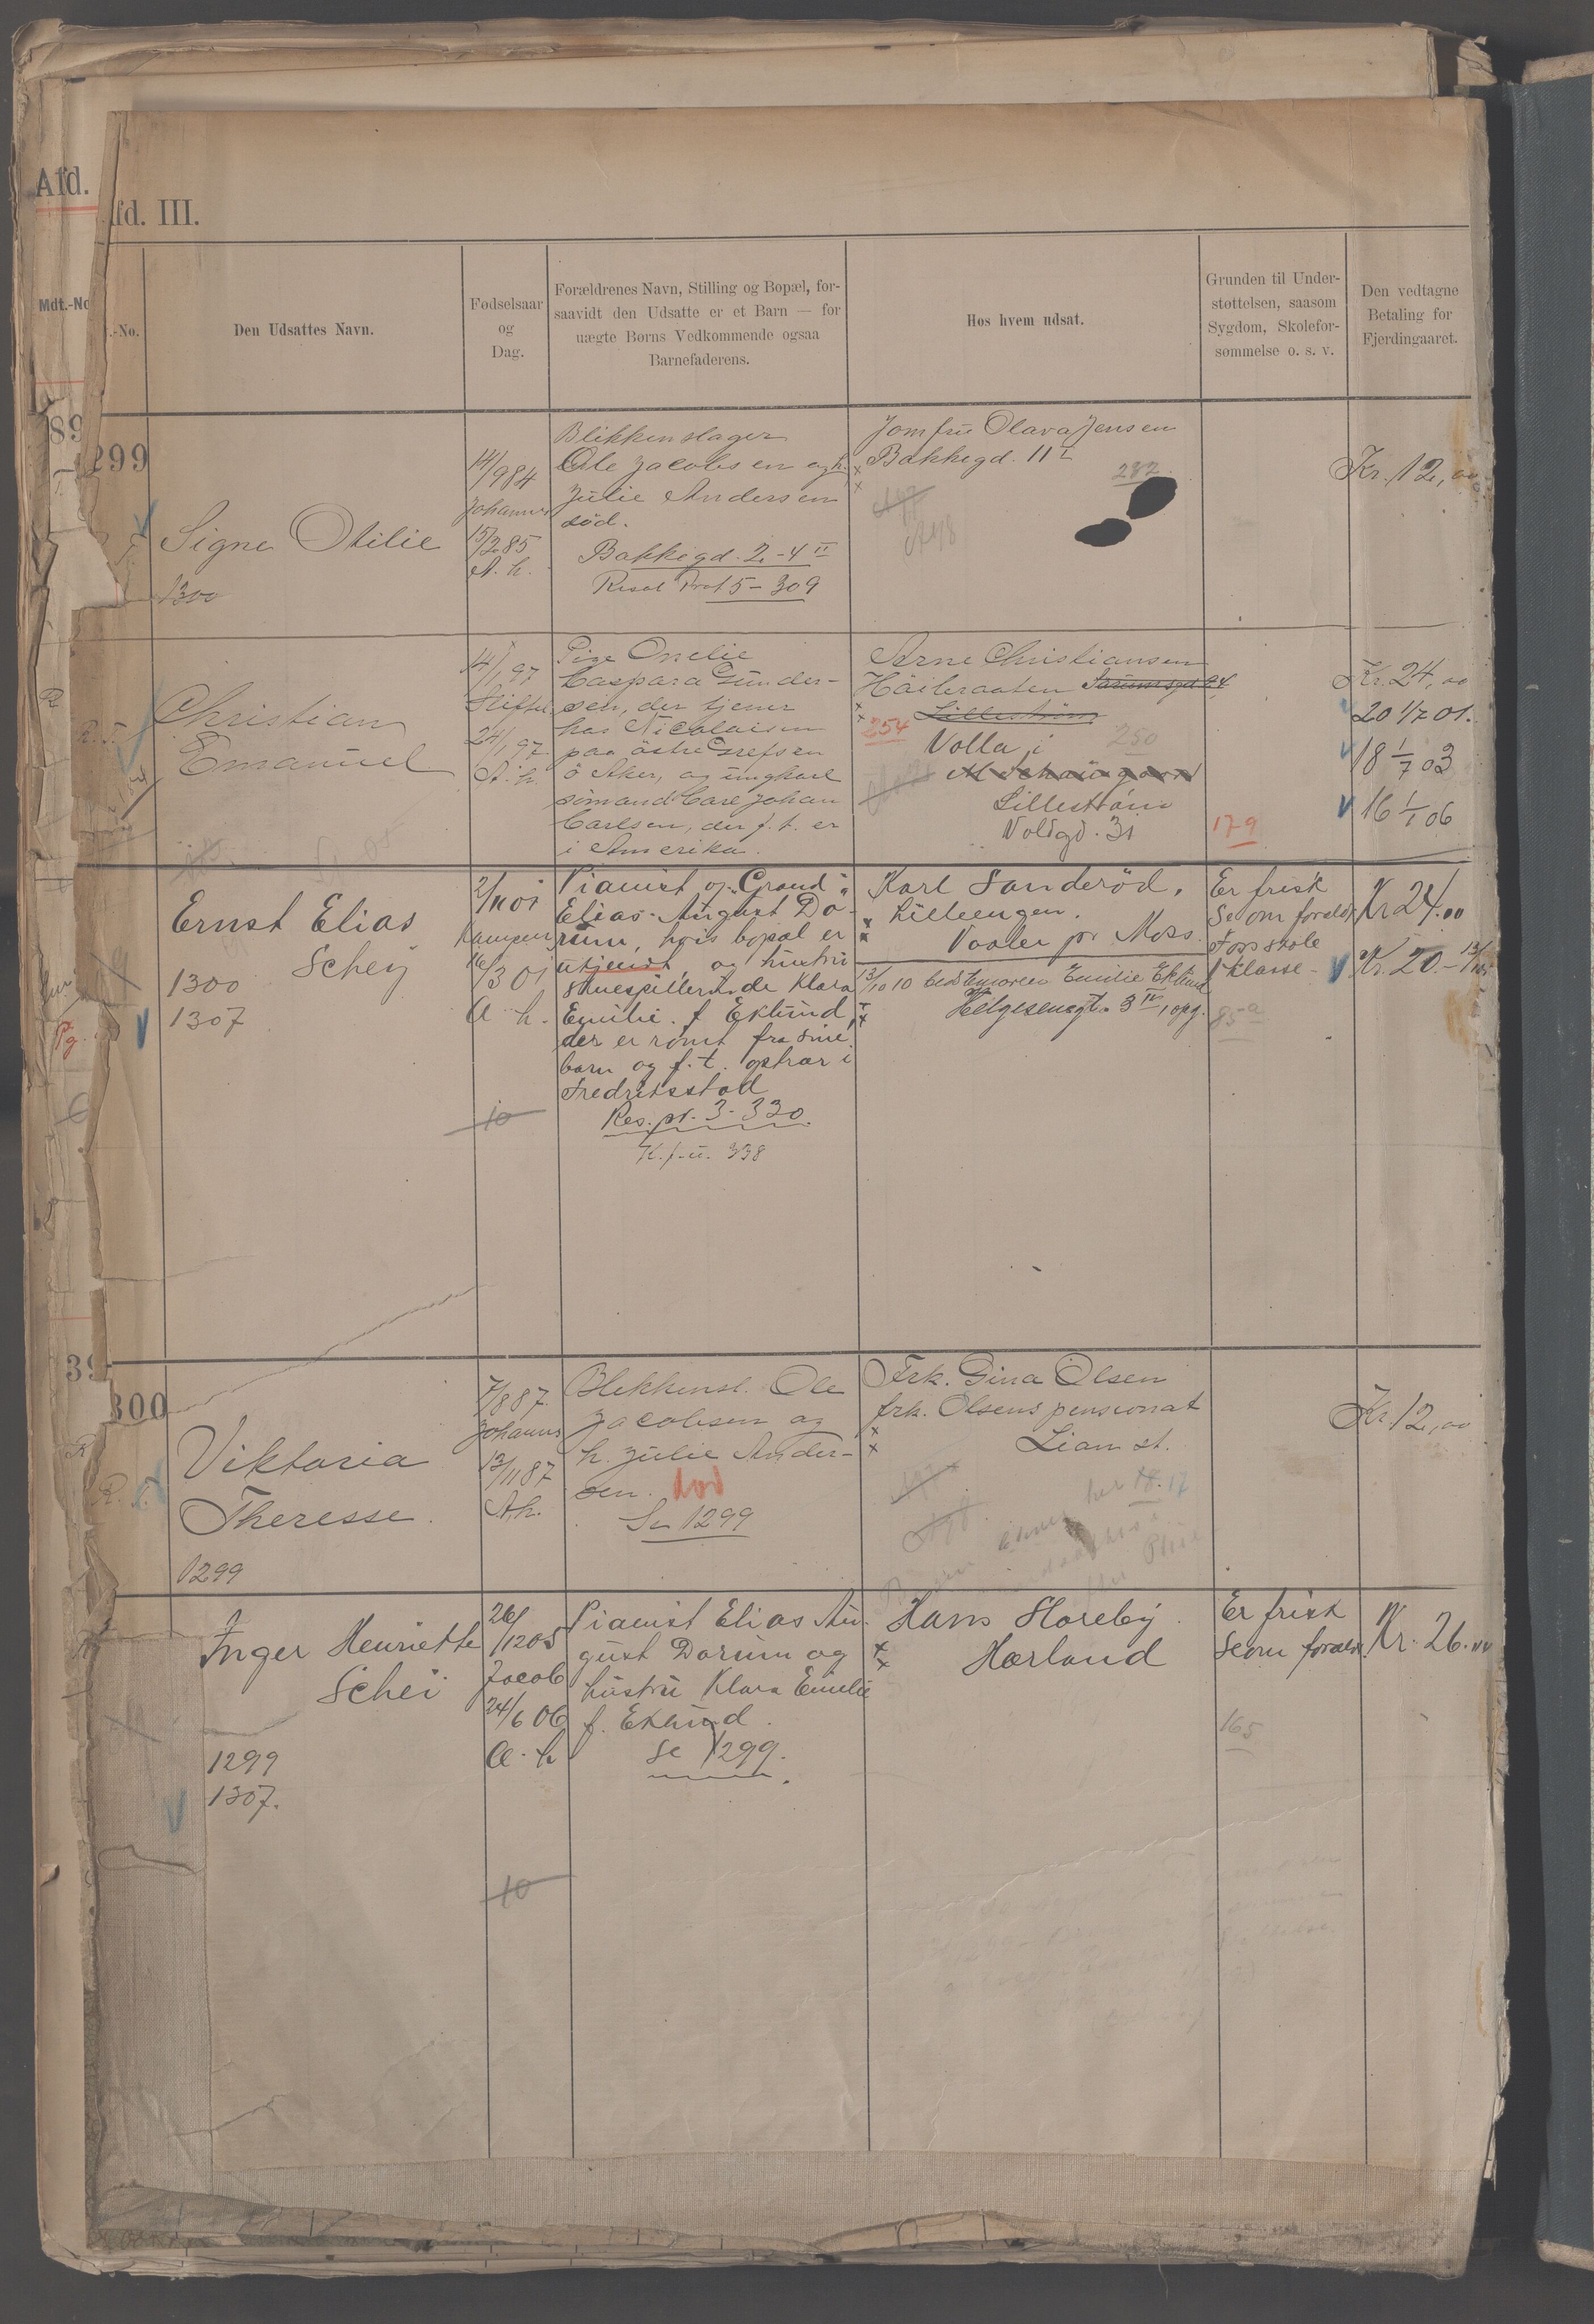 Afd.
fd. III.
Mdt.-No
.-No.
Den Udsattes Navn.
Fødselsaar
og
Dag.
Forældrenes Navn, Stilling og Bopæl, for-
saavidt den Udsatte er et Barn — for
uægte Børns Vedkommende ogsaa
Barnefaderens.
Hos hvem udsat.
Grunden til Under-
støttelsen, saasom
Sygdom, Skolefor-
sømmelse o. s. v.
Den vedtagne
Betaling for
Fjerdingaaret.
299
Signe Otilie
1300
14/984
Johannes
15/285
A. h.
Blikkenslager
Ole Jacobsen og h.
Julie Andersen
död.
Bakkegd. 2-4 II
Prot 5-309
Jomfru Olava Jensen
Bakkegd. 11 I
282
Kr. 12,00
Christian
Emanuel
14/1 97
24/1 97
A. h.
Pige Onelie
Caspara Gunder-
sen, der tjener
hos Nicolaisen
paa östre Grefsen
ö Aker, og ungkarl
sömand Carl Johan
Carlsen, der f. t. er
i Amerika.
Arne Christiansen
Häibraaten
Lilleström
254
Volla i
250
Lilleström
Voldgd. 31
179
Kr. 24,00
20 1/7 01.
18 1/7 03
16 1/1 06
Ernst Elias
Scheij
1300
1307
2/1101
Kampen
16/301
A h.
10
Pianist og "Grand"
Elias August Do-
rum, hvis bopæl er
ukjendt, og hustru
skuespillerinde Klara
Emilie f. Eklund,
der er römt fra sine
barn og f. t. optrær i
Fredriksstad
Res. pr. 3-330.
K. f. u. 338
Karl Sanderöd,
Lilleengen.
Vaaler pr Moss
13/10 10 bedstemoren Emilie Eklund
Helgesensgt. 3 IV, 1 opg.
Er frisk
Se om foreldr.
Foss skole
1 klasse
85a
Kr 24.00
Kr. 20.-
39
300
Viktoria
Theresse.
1299
7/887.
Johannes
13/1187
A.h.
Blikkensl. Ole
Jacobsen og
h. Julie Ander-
sen. död
Se 1299
Frk. Gina Olsen
frk. Olsens pensionat
Lian st.
Kr. 12,00
Inger Henriette
Schei
1299
1307.
26/1205
Jacob
24/6 06
A. h
10
Pianist Elias Au-
gust Dorum og
hustru Klara Emilie
f. Eklund.
Se 1299.
Hans Storeby
Hærland
Er frisk
Se om foreldr.
165
Kr. 26.00